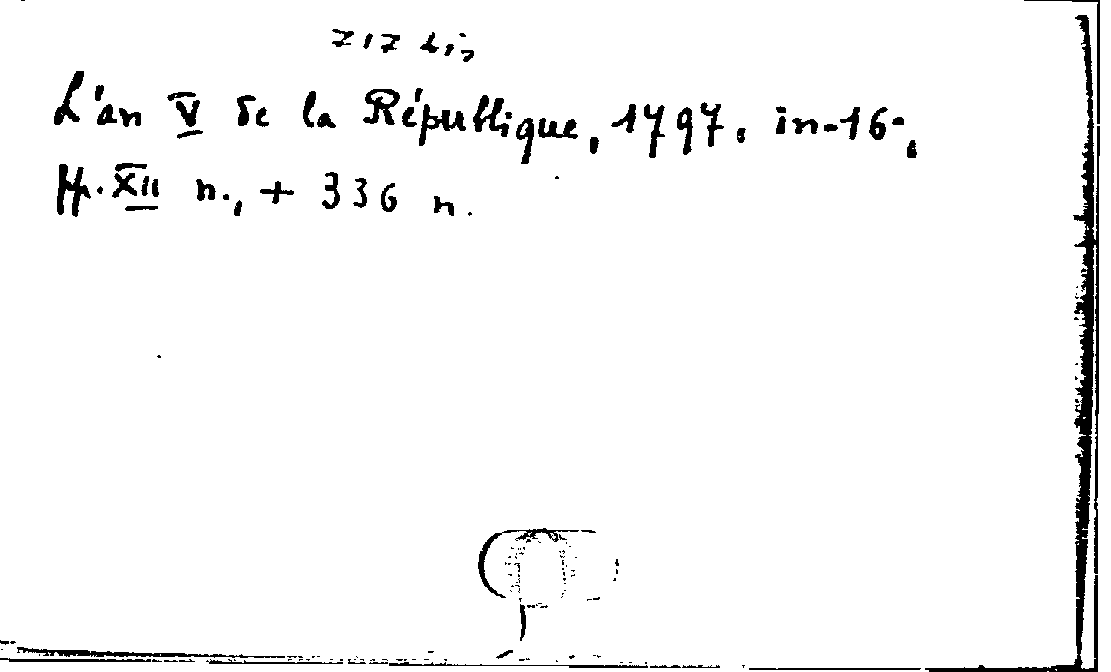 717 bis
L'an V de la République, 1797, in-16°,
pp. XII n., + 336 n.